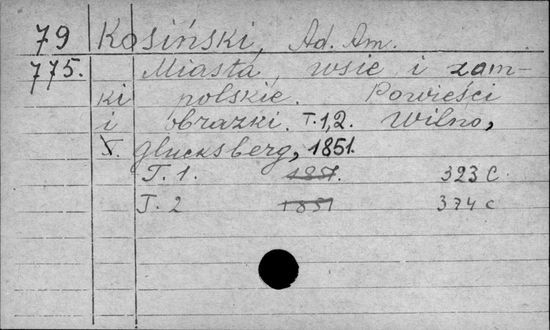 79 Kosiński, Ad. Am.
775. Miasta, wsie i zam-
ki polskie. Powieści
i obrazki. T. 1, 2. Wilno,
T. Glucksberg, 1851.
T. 1. 1851. 323 C.
T. 2 1851 374 c